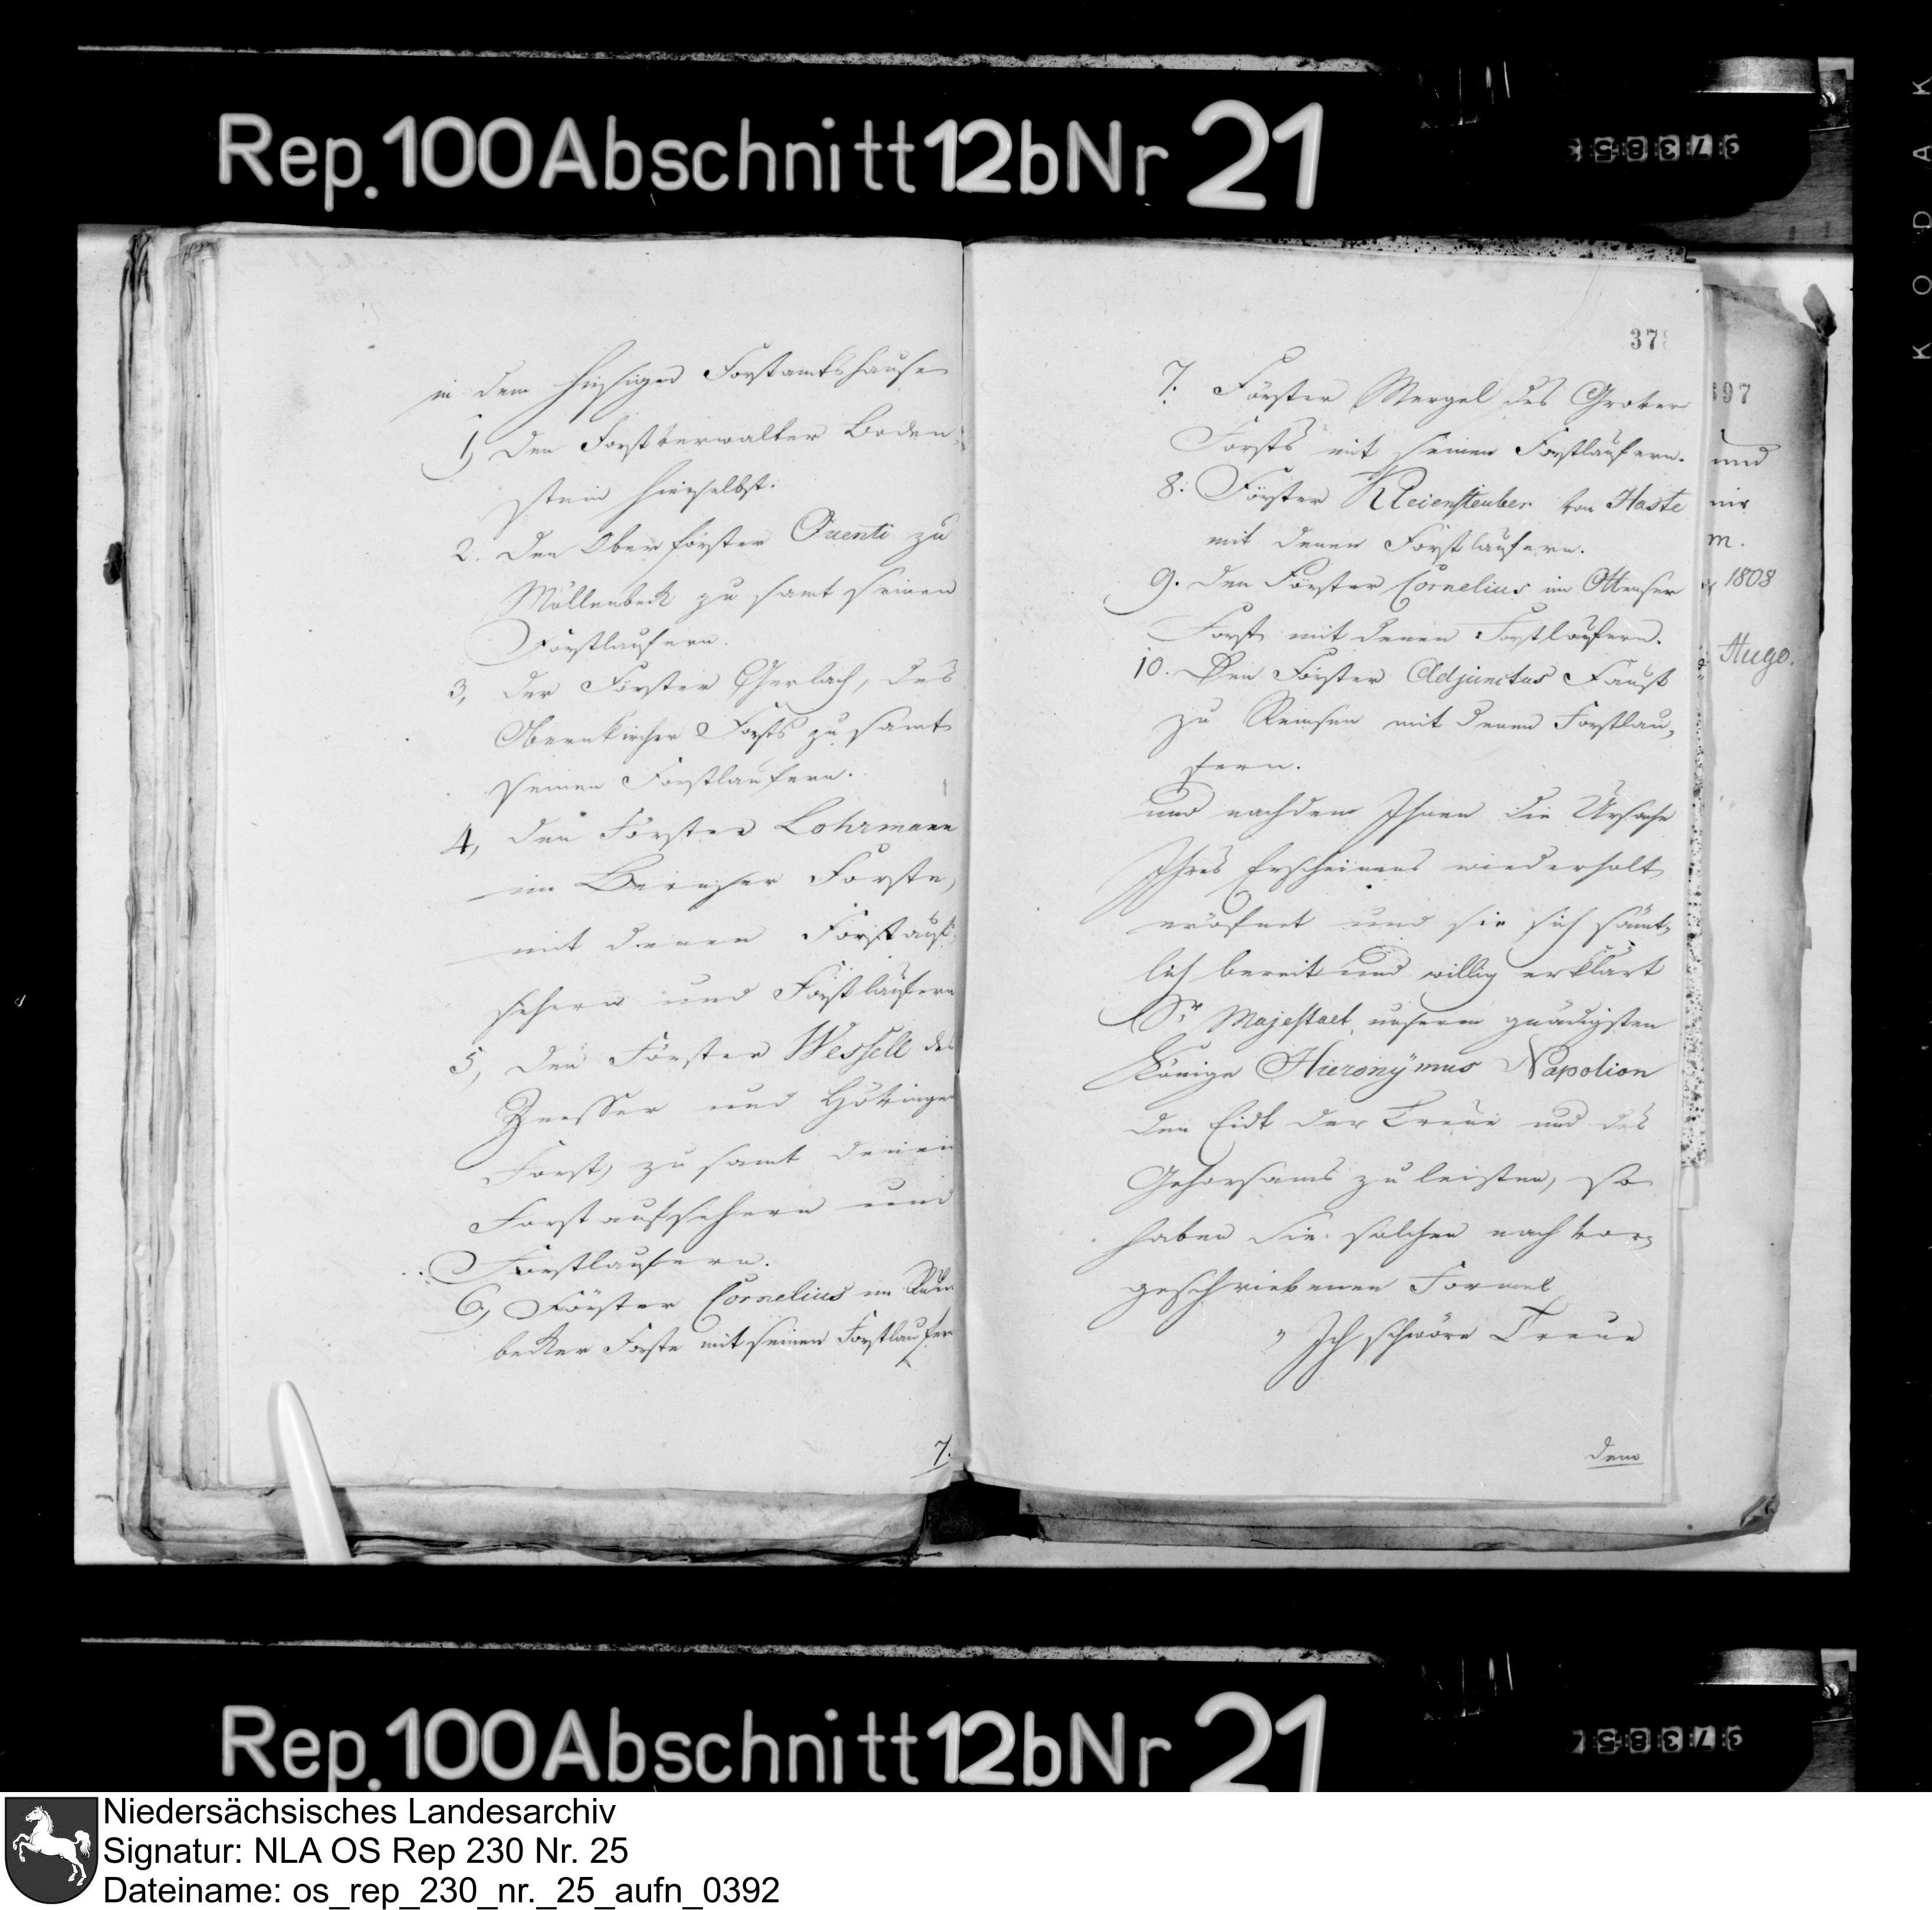 Rep. 100 Abschnitt 12b Nr 21
KODAK
in dem hiesigen Forstamtshause
1, Den Forstverwalter Boden-
stein hieselbst.
2. Den Oberförster Quenti zu
Möllenbeck zu samt seinen
Forstlaufern.
3, der Förster Gerlach, des
Obernkircher Forsts zu samt
seinen Forstlaufern.
4, den Förster Lohrmann
im Forste,
mit denen Forstauf-
sehern und Forstläufern
5, den Förster Wessell des
und Hötinger
Forst, zu samt denen
Forstaufsehern und
Forstlaufern.
6, Förster Cornelius im Rum
becker Forste mit seinen Forstlaufern
7.
378
7. Förster Mergel des Grover
Forsts mit seinen Forstlaufern.
8. Förster Kleiensteuber von Haste
mit denen Forstlaufern.
9. den Förster Cornelius im Ottenser
Forst mit denen Forstlaufern.
10. Den Förster Adjunctus Faust
zu Reinsen mit denen Forstlau-
fern.
und nachdem Ihnen die Ursache
Ihres Erscheinens wiederholt
eröfnet und sie sich sämt-
lich bereit und willig erklärt
Sr Majestaet unserm gnädigsten
Könige Hieronÿmus Napolion
den Eidt der Treue und des
Gehorsams zu leisten, so
haben sie solchen nach vor-
geschriebenen Formel
„ Ich schwöre Treue
dem
397
und
m.
1808
Hugo.
Rep. 100 Abschnitt 12b Nr 21
Niedersächsisches Landesarchiv
Signatur: NLA OS Rep 230 Nr. 25
Dateiname: os_rep_230_nr._25_aufn_0392